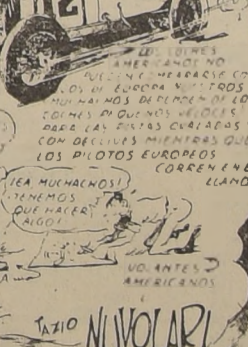 LOS COCHES
AMERICANOS NO
PUEDEN COMPARARSE CON
LOS DE EUROPA NUESTROS
MUCHACHOS DEPENDEN DE LOS
COCHES PEQUEÑOS VELOCES
PARA LAS PISTAS OVALADAS
CON DECLIVES MIENTRAS QUE
LOS PILOTOS EUROPEOS
CORREN EN E
LLANO
¡EA, MUCHACHOS!
TENEMOS
QUE HACER
ALGO!
VOLANTES
AMERICANOS
TAZIO NUVOLARI